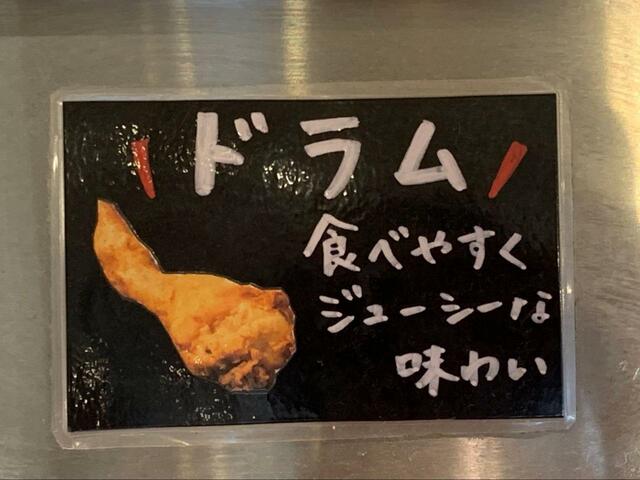 ドラム
食べやすく
ジューシーな
味わい